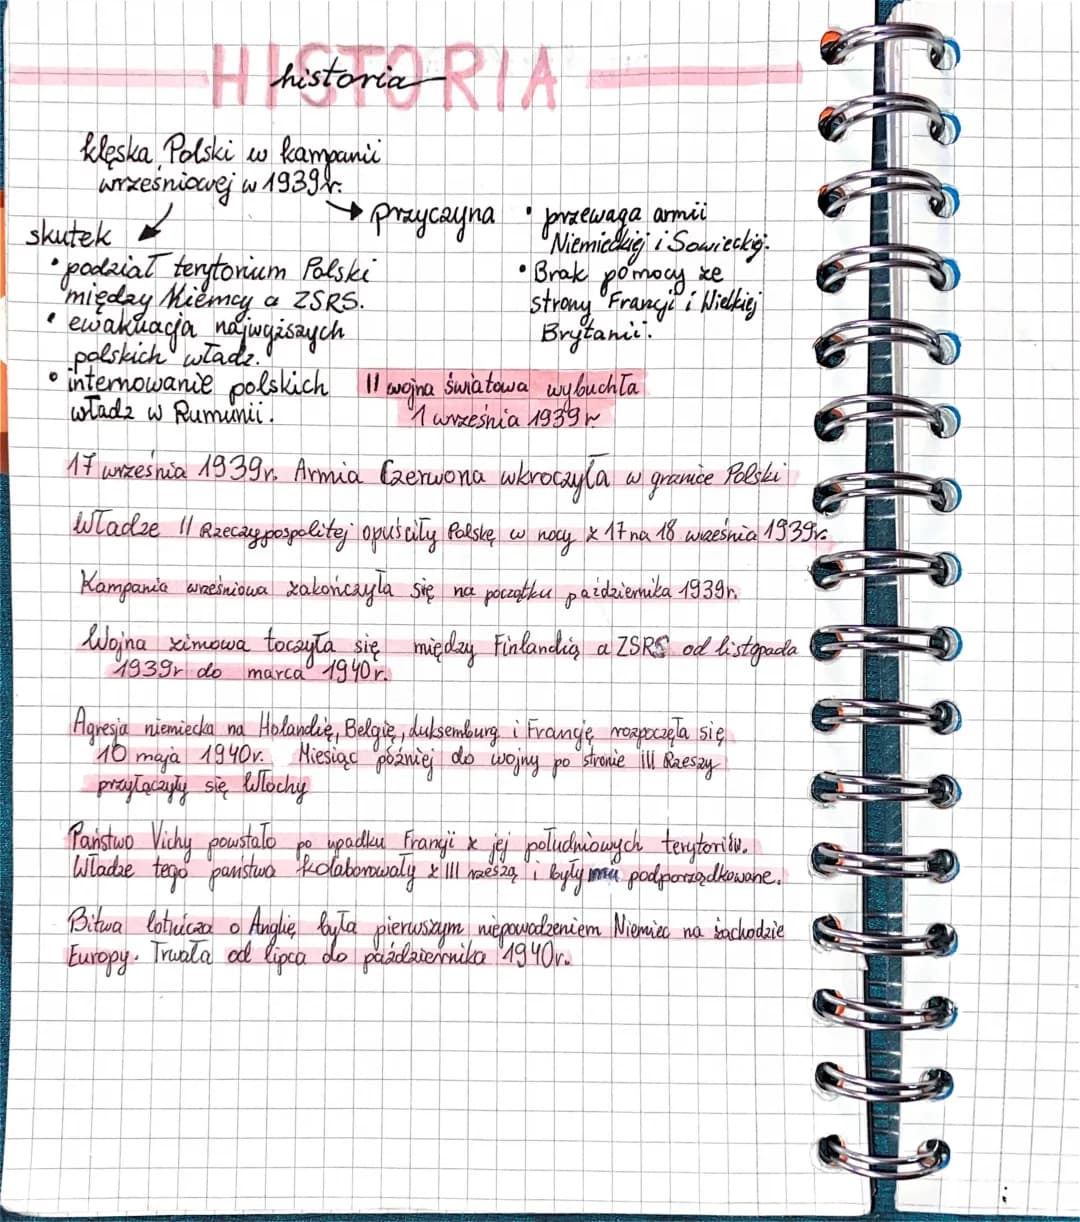 HISTORIA
historia
klęska Polski w kampanii
wrześniowej w 1939r.
skutek
• podział terytorium Polski
między Niemcy a ZSRS.
• ewakuacja najwyższych
polskich władz.
• internowanie polskich
władz w Rumunii.
przyczyna
• przewaga armii
Niemieckiej i Sowieckiej.
• Brak pomocy ze
strony Francji i Wielkiej
Brytanii.
II wojna światowa wybuchła
1 września 1939r
17 września 1939r. Armia Czerwona wkroczyła w granice Polski
Władze II Rzeczypospolitej opuściły Polskę w nocy z 17 na 18 września 1939r.
Kampania wrześniowa zakończyła się na początku października 1939r.
Wojna zimowa toczyła się między Finlandią a ZSRS od listopada
1939r do marca 1940r.
Agresja niemiecka na Holandię, Belgię, Luksemburg i Francję rozpoczęła się
10 maja 1940r. Miesiąc później do wojny po stronie III Rzeszy
przyłączyły się Włochy
Państwo Vichy powstało po upadku Francji z jej południowych terytoriów.
Władze tego państwa kolaborowały z III rzeszą i były mu podporządkowane.
Bitwa lotnicza o Anglię była pierwszym niepowodzeniem Niemiec na zachodzie
Europy. Trwała od lipca do października 1940r.